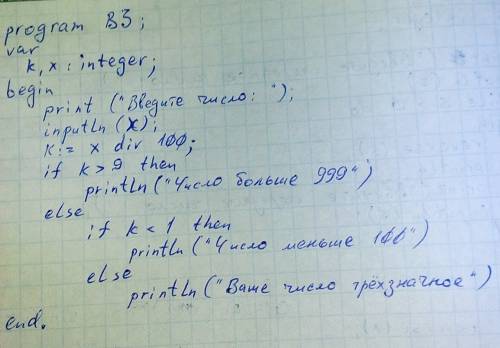 program B3;
var
k, x : integer;
begin
print ("Введите число: ");
inputln (x);
k:= x div 100;
if k > 9 then
println ("Число больше 999")
else
if k < 1 then
println ("Число меньше 100")
else
println ("Ваше число трёхзначное")
end.